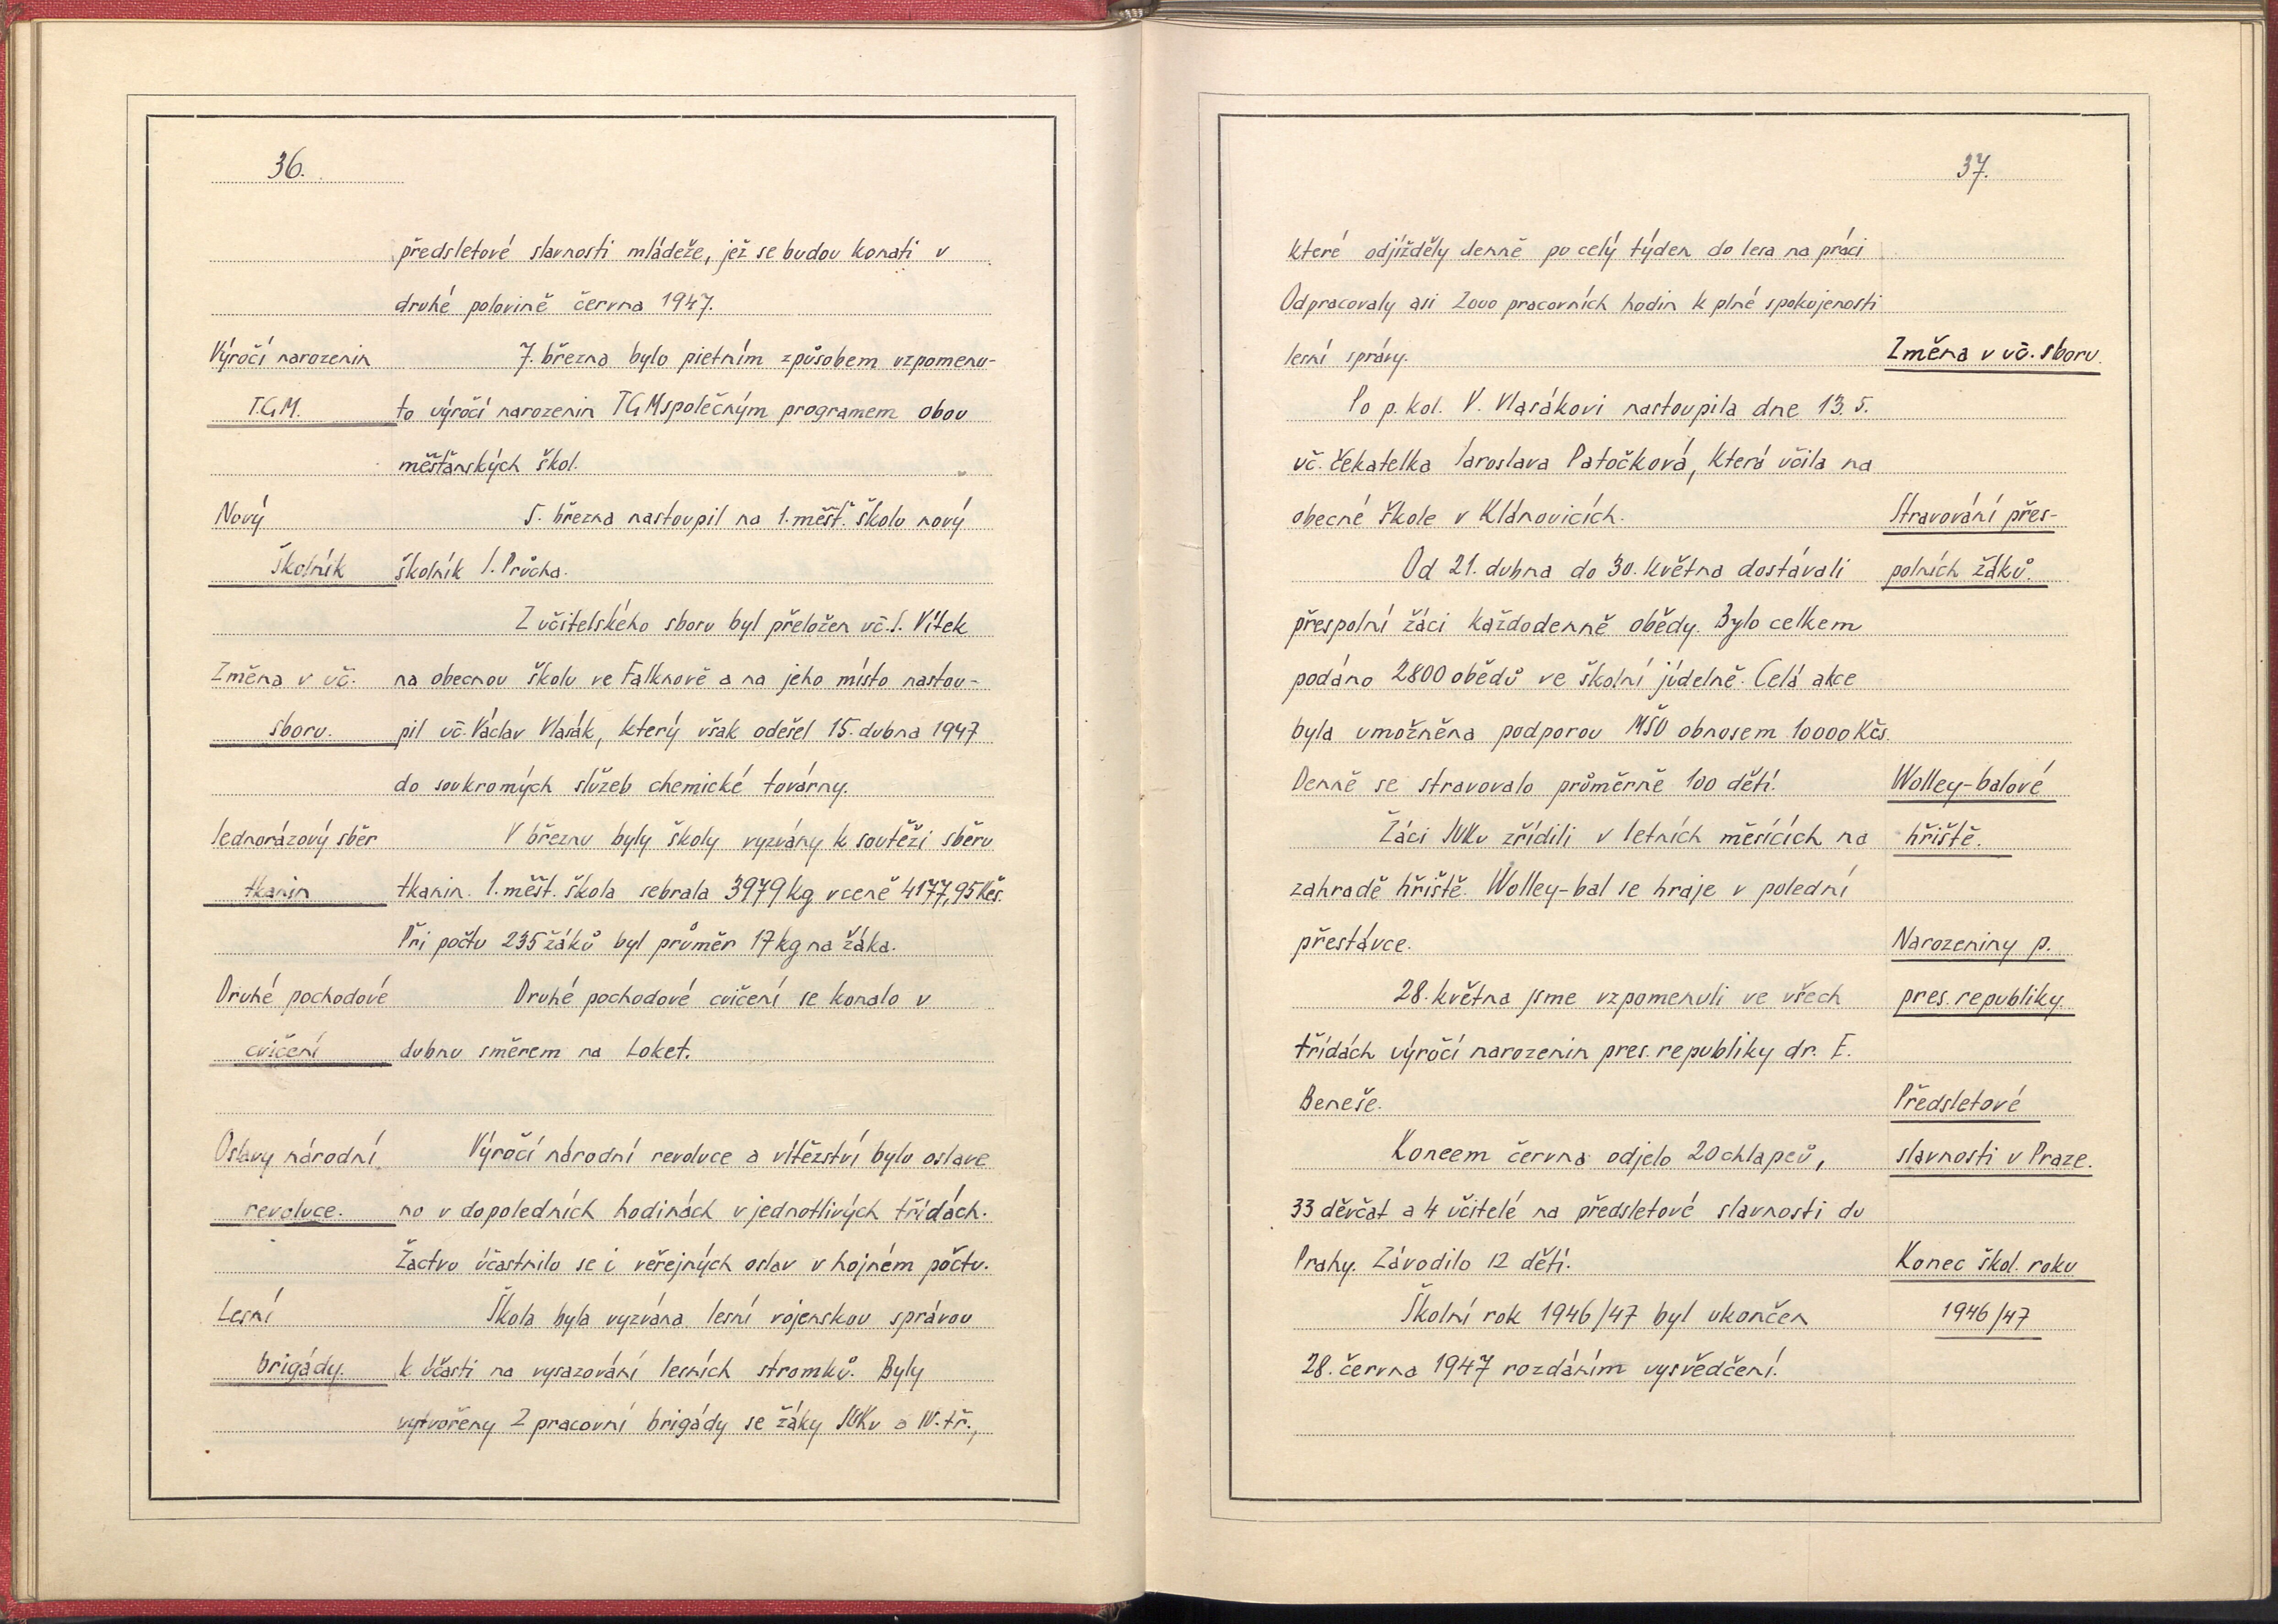 36.
předsletové slavnosti mládeže, jež se budou konati v
druhé polovině června 1947.
Výročí narozenin 7. března bylo pietním způsobem vzpomenu-
T.G.M. to výročí narozenin TGM společným programem obou
měšťanských škol.
Nový 5. března nastoupil na 1. měšť. školu nový
školník školník J. Průcha.
Z učitelského sboru byl přeložen uč. J. Vítek
Změna v uč. na obecnou školu ve Falknově a na jeho místo nastou-
sboru. pil uč. Václav Vlasák, který však odešel 15. dubna 1947
do soukromých služeb chemické továrny.
Jednorázový sběr V březnu byly školy vyzvány k soutěži sběru
tkanin tkanin. 1. měšt. škola sebrala 3979 kg v ceně 4177,95 Kčs.
Při počtu 235 žáků byl průměr 17 kg na žáka.
Druhé pochodové Druhé pochodové cvičení se konalo v
cvičení dubnu směrem na Loket.
Oslavy národní Výročí národní revoluce a vítězství bylo oslave
revoluce. no v dopoledních hodinách v jednotlivých třídách.
Žactvo účastnilo se i veřejných oslav v hojném počtu.
Lesní Škola byla vyzvána lesní vojenskou správou
brigády. k účasti na vysazování lesních stromků. Byly
vytvořeny 2 pracovní brigády se žáky JUKu a IV. tř.,
37.
které odjížděly denně po celý týden do lesa na práci
Odpracovaly asi 2000 pracovních hodin k plné spokojenosti
lesní správy. Změna v uč. sboru.
Po p. kol. V. Vlasákovi nastoupila dne 13. 5.
uč. čekatelka Jaroslava Patočková, která učila na
obecné škole v Klánovicích. Stravování přes-
Od 21. dubna do 30. května dostávali polních žáků.
přespolní žáci každodenně obědy. Bylo celkem
podáno 2800 obědů ve školní jídelně. Celá akce
byla umožněna podporou MŠO obnosem 10000 Kčs.
Denně se stravovalo průměrně 100 dětí. Wolley-balové
Žáci JUKu zřídili v letních měsících na hřiště.
zahradě hřiště. Wolley-bal se hraje v polední
přestávce. Narozeniny p.
28. května jsme vzpomenuli ve všech pres. republiky.
třídách výročí narozenin pres. republiky dr. E.
Beneše. Předsletové
Koncem června odjelo 20 chlapců, slavnosti v Praze.
33 děvčat a 4 učitelé na předsletové slavnosti do
Prahy. Závodilo 12 dětí. Konec škol. roku
Školní rok 1946/47 byl ukončen 1946/47
28. června 1947 rozdáním vysvědčení.